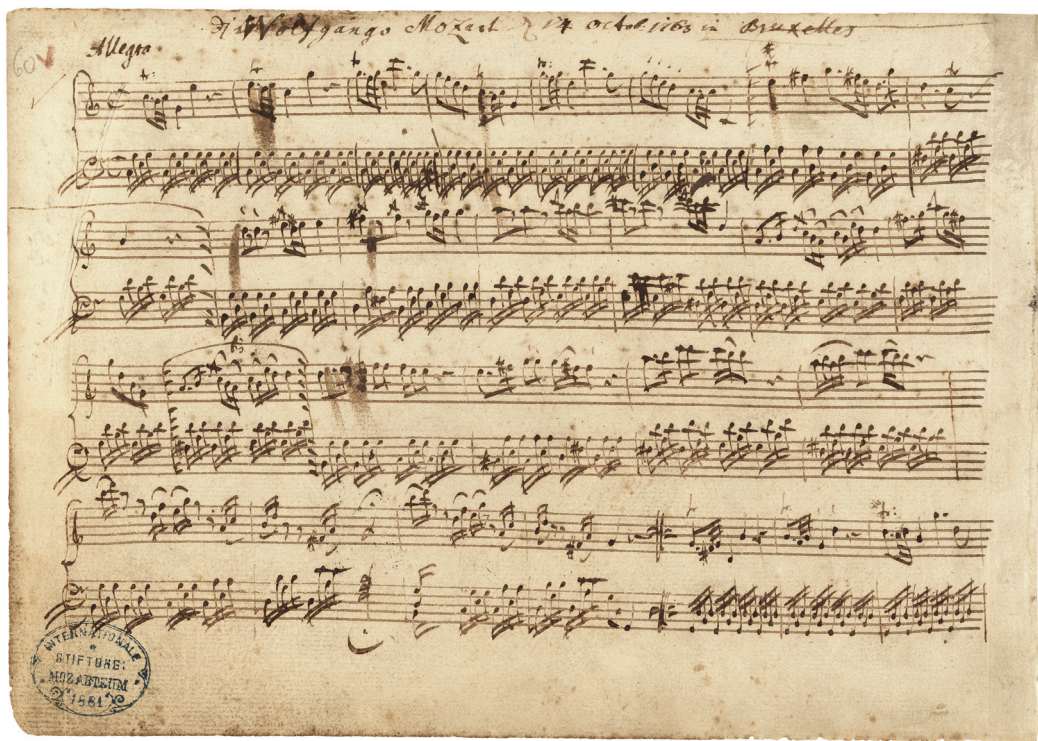 Wolfgango Mozart d 14 octob. 1763 in Bruxelles
Allegro
60
INTERNATIONALE
STIFTUNG:
MOZARTEUM
1881